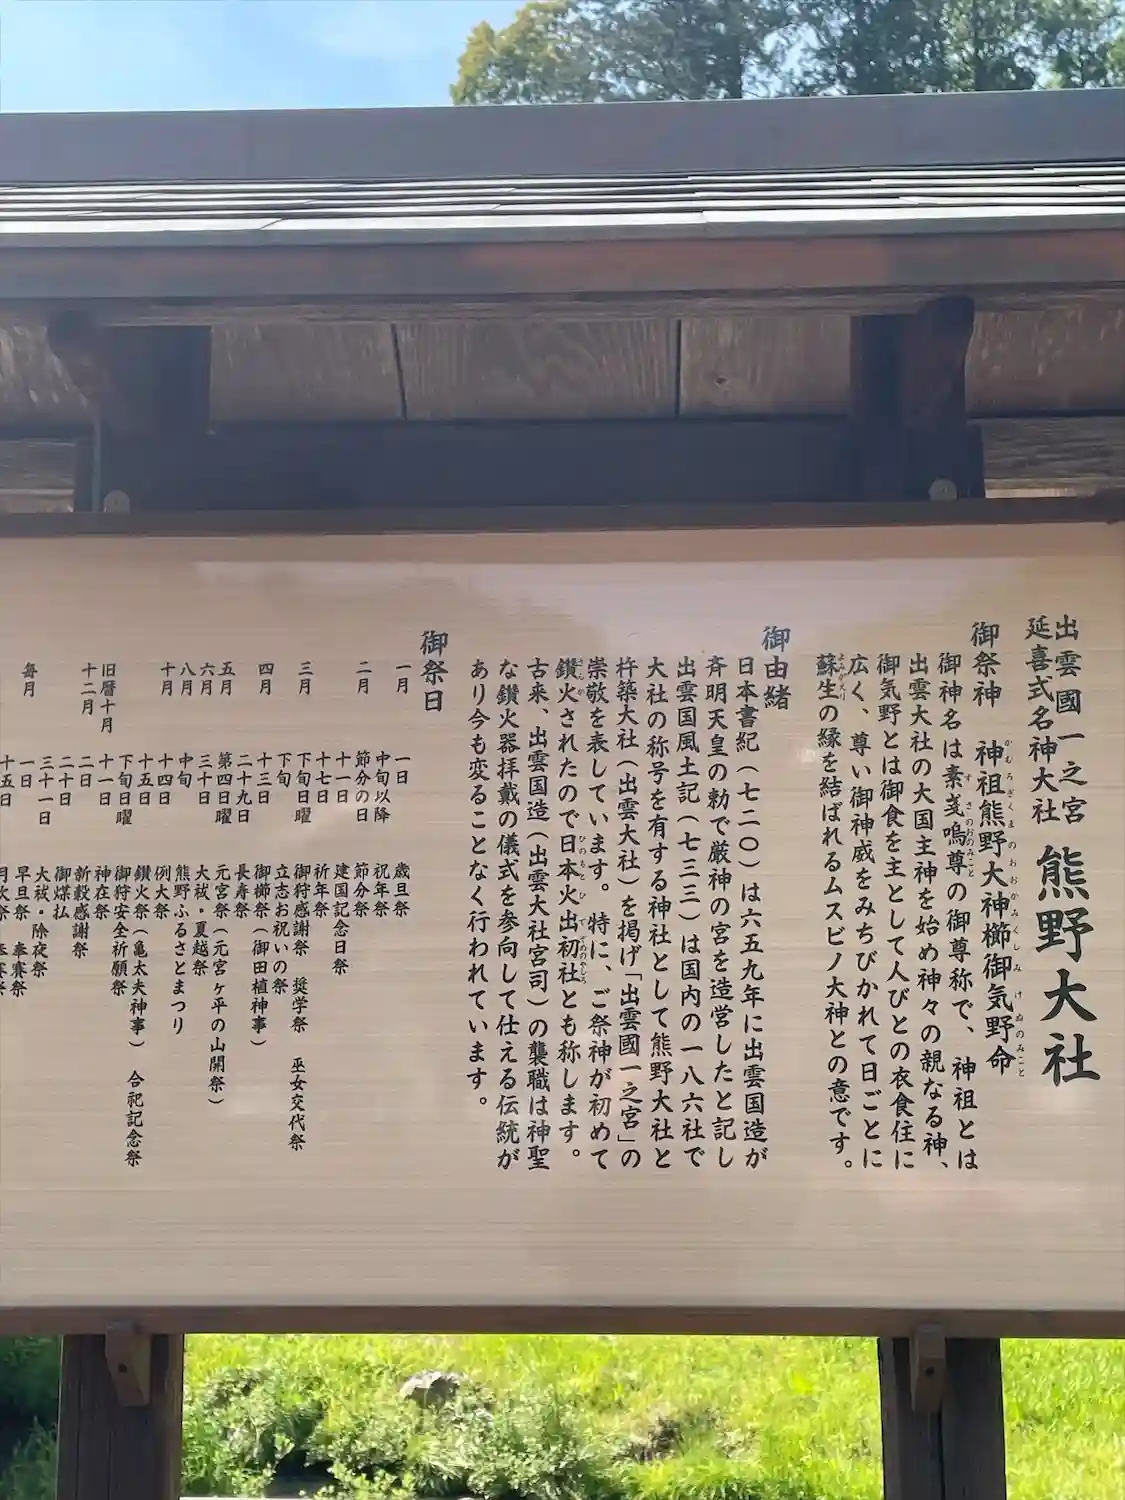 出雲國一之宮
延喜式名神大社
熊野大社
御祭神 神祖熊野大神櫛御気野命
かむろぎくまのおおかみくしみけぬのみこと
御神名は素戔嗚尊の御尊称で、神祖とは
すさのおのみこと
出雲大社の大国主神を始め神々の親なる神、
御気野とは御食を主として人びとの衣食住に
広く、尊い御神威をみちびかれて日ごとに
蘇生の縁を結ばれるムスビノ大神との意です。
よみがえり
御由緒
日本書紀(七二〇)は六五九年に出雲国造が
斉明天皇の勅で厳神の宮を造営したと記し
出雲国風土記(七三三)は国内の一八六社で
大社の称号を有する神社として熊野大社と
杵築大社(出雲大社)を掲げ「出雲國一之宮」の
崇敬を表しています。特に、ご祭神が初めて
鑽火されたので日本火出初社とも称します。
さんか ひのもとひでぞめのやしろ
古来、出雲国造(出雲大社宮司)の襲職は神聖
な鑽火器拝戴の儀式を参向して仕える伝統が
あり今も変ることなく行われています。
御祭日
一月 一日 歳旦祭
中旬以降 祝年祭
二月 節分の日 節分祭
十一日 建国記念日祭
十七日 祈年祭
三月 下旬日曜 御狩感謝祭 奨学祭 巫女交代祭
下旬 立志お祝いの祭
四月 十三日 御櫛祭(御田植神事)
二十九日 長寿祭
五月 第四日曜 元宮祭(元宮ヶ平の山開祭)
六月 三十日 大祓・夏越祭
八月 中旬 熊野ふるさとまつり
十月 十四日 例大祭
十五日 鑽火祭(亀太夫神事) 合祀記念祭
下旬日曜 御狩安全祈願祭
旧暦十月 十一日 神在祭
十二月 二日 新穀感謝祭
二十日 御煤払
三十一日 大祓・除夜祭
毎月 一日 早旦祭 奉賽祭
十五日 月次祭